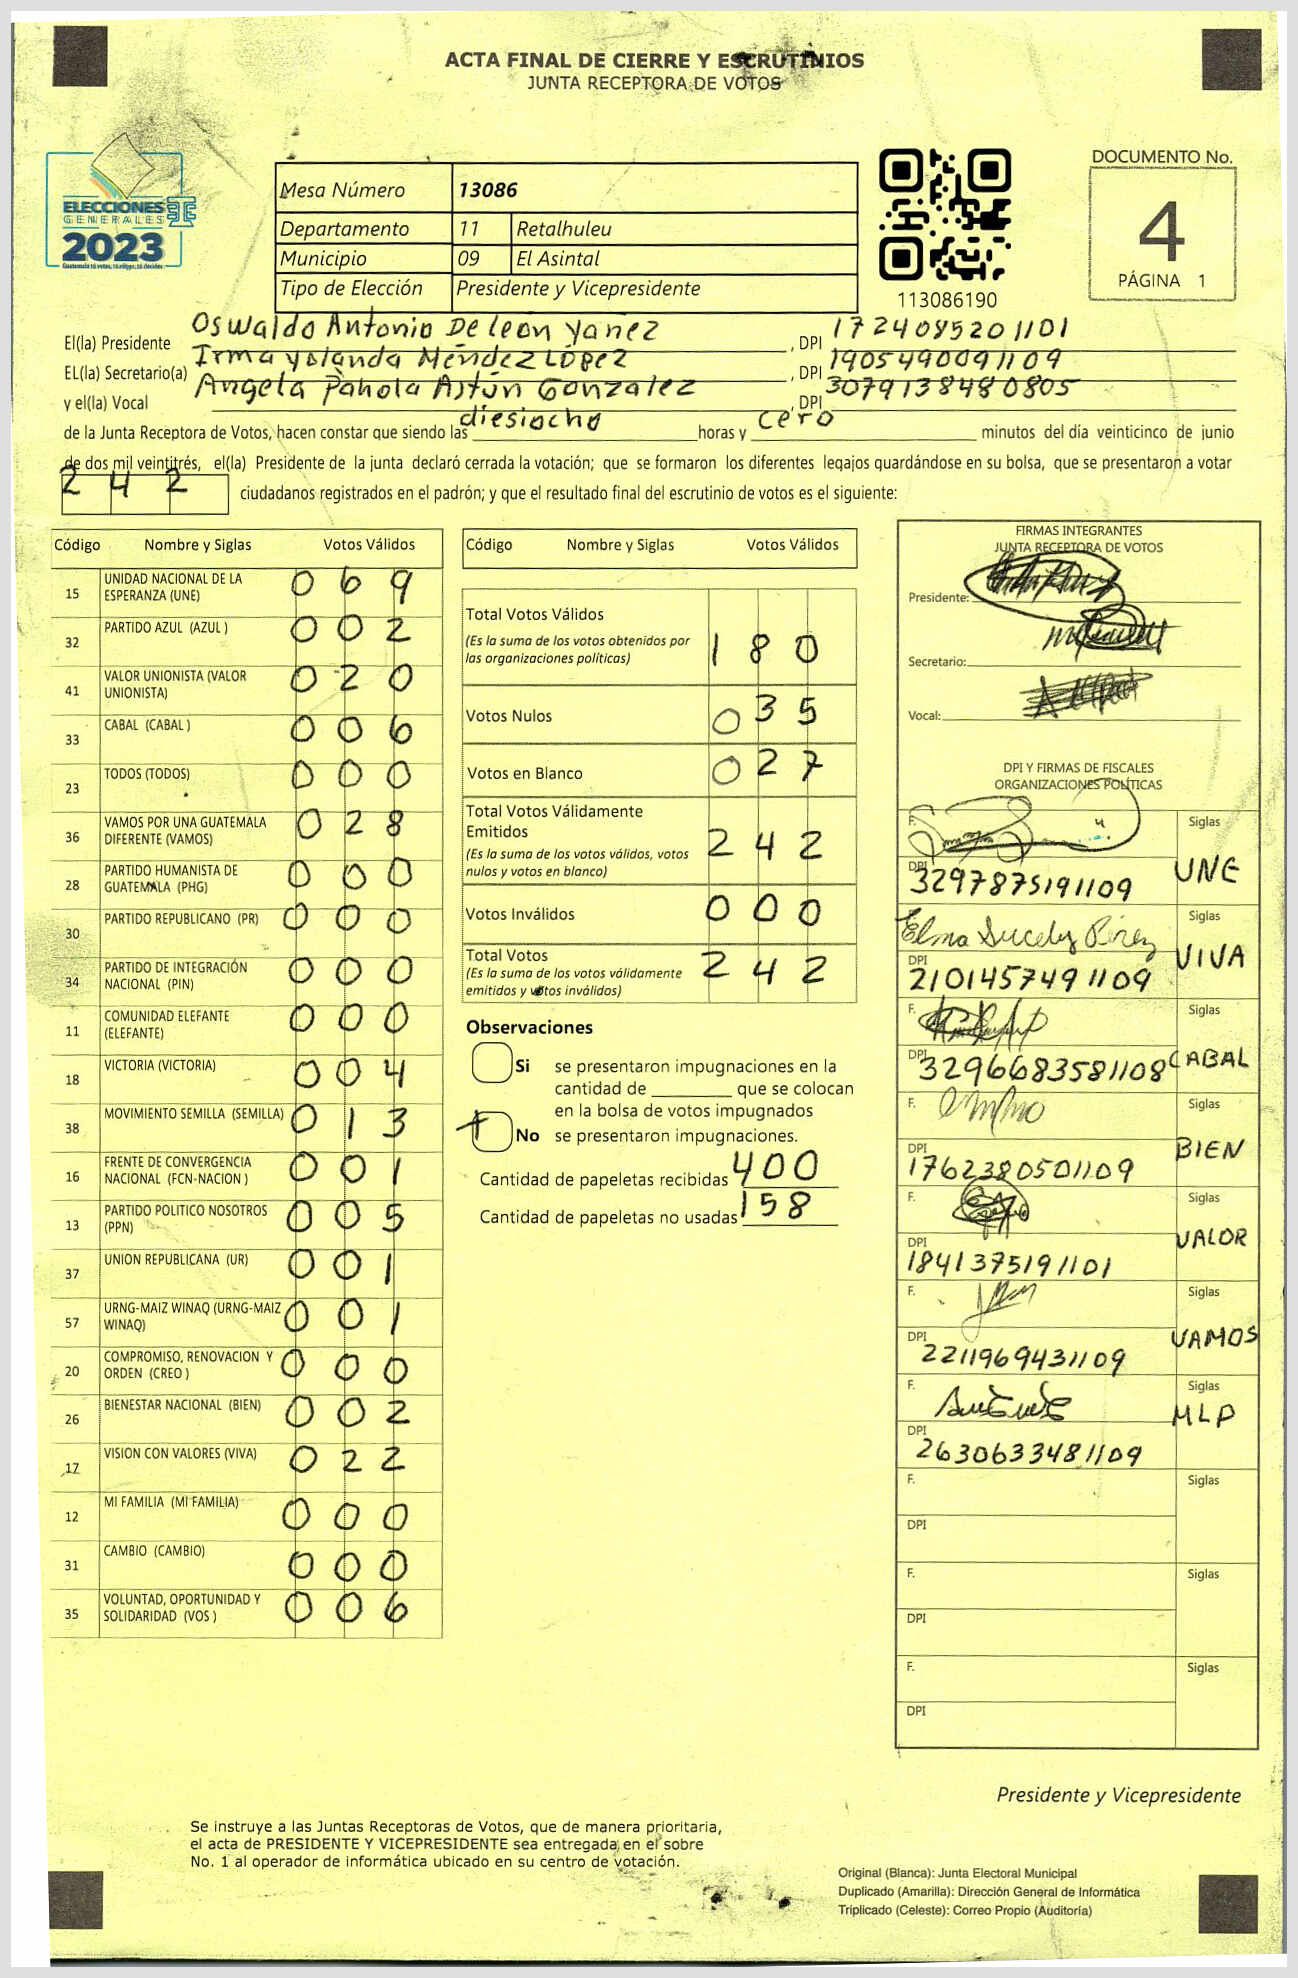 ACTA FINAL DE CIERRE Y ESCRUTINIOS
JUNTA RECEPTORA DE VOTOS
ELECCIONES
GENERALES
2023
Guatemala tú votas, tú eliges, tú decides
Mesa Número 13086
Departamento 11 Retalhuleu
Municipio 09 El Asintal
Tipo de Elección Presidente y Vicepresidente
113086190
DOCUMENTO No.
4
PÁGINA 1
El(la) Presidente Oswaldo Antonio De leon Yañez, DPI 1724085201101
EL(la) Secretario(a) Irma yolanda Méndez López, DPI 1905490091109
y el(la) Vocal Angela Pahola Astún Gonzalez, DPI 3079138480805
de la Junta Receptora de Votos, hacen constar que siendo las diesiocho horas y cero minutos del día veinticinco de junio
de dos mil veintitrés, el(la) Presidente de la junta declaró cerrada la votación; que se formaron los diferentes legajos guardándose en su bolsa, que se presentaron a votar
242 ciudadanos registrados en el padrón; y que el resultado final del escrutinio de votos es el siguiente:
Código Nombre y Siglas Votos Válidos
15 UNIDAD NACIONAL DE LA ESPERANZA (UNE) 069
32 PARTIDO AZUL (AZUL ) 002
41 VALOR UNIONISTA (VALOR UNIONISTA) 020
33 CABAL (CABAL ) 006
23 TODOS (TODOS) 000
36 VAMOS POR UNA GUATEMALA DIFERENTE (VAMOS) 028
28 PARTIDO HUMANISTA DE GUATEMALA (PHG) 000
30 PARTIDO REPUBLICANO (PR) 000
34 PARTIDO DE INTEGRACIÓN NACIONAL (PIN) 000
11 COMUNIDAD ELEFANTE (ELEFANTE) 000
18 VICTORIA (VICTORIA) 004
38 MOVIMIENTO SEMILLA (SEMILLA) 013
16 FRENTE DE CONVERGENCIA NACIONAL (FCN-NACION ) 001
13 PARTIDO POLITICO NOSOTROS (PPN) 005
37 UNION REPUBLICANA (UR) 001
57 URNG-MAIZ WINAQ (URNG-MAIZ WINAQ) 001
20 COMPROMISO, RENOVACION Y ORDEN (CREO ) 000
26 BIENESTAR NACIONAL (BIEN) 002
17 VISION CON VALORES (VIVA) 022
12 MI FAMILIA (MI FAMILIA) 000
31 CAMBIO (CAMBIO) 000
35 VOLUNTAD, OPORTUNIDAD Y SOLIDARIDAD (VOS ) 006
Código Nombre y Siglas Votos Válidos
Total Votos Válidos
(Es la suma de los votos obtenidos por
las organizaciones políticas) 180
Votos Nulos 035
Votos en Blanco 027
Total Votos Válidamente
Emitidos
(Es la suma de los votos válidos, votos
nulos y votos en blanco) 242
Votos Inválidos 000
Total Votos
(Es la suma de los votos válidamente
emitidos y votos inválidos) 242
Observaciones
Si se presentaron impugnaciones en la
cantidad de ________ que se colocan
en la bolsa de votos impugnados
No se presentaron impugnaciones.
Cantidad de papeletas recibidas 400
Cantidad de papeletas no usadas 158
FIRMAS INTEGRANTES
JUNTA RECEPTORA DE VOTOS
Presidente:
Secretario:
Vocal:
DPI Y FIRMAS DE FISCALES
ORGANIZACIONES POLÍTICAS
F. Siglas
DPI 3297875191109 UNE
Elma Sucely Pérez Siglas
DPI 2101457491109 VIVA
F. Siglas
DPI 3296683581108 CABAL
F. Siglas
DPI 1762380501109 BIEN
F. Siglas
DPI 1841375191101 VALOR
F. Siglas
DPI 2211969431109 VAMOS
F. Siglas
DPI 2630633481109 MLP
F. Siglas
DPI
F. Siglas
DPI
F. Siglas
DPI
Presidente y Vicepresidente
Se instruye a las Juntas Receptoras de Votos, que de manera prioritaria,
el acta de PRESIDENTE Y VICEPRESIDENTE sea entregada en el sobre
No. 1 al operador de informática ubicado en su centro de votación.
Original (Blanca): Junta Electoral Municipal
Duplicado (Amarilla): Dirección General de Informática
Triplicado (Celeste): Correo Propio (Auditoría)